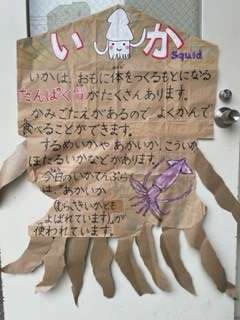 いか
Squid
いかは、おもに体をつくるもとになる
たんぱく質がたくさんあります。
かみごたえがあるので、よくかんで
食べることができます。
するめいかやあかいか、こういか
ほたるいかなどがあります。
今日のいかてんぷら
は"あかいか
(むらさきいかとも
よばれています)"が
使われています。